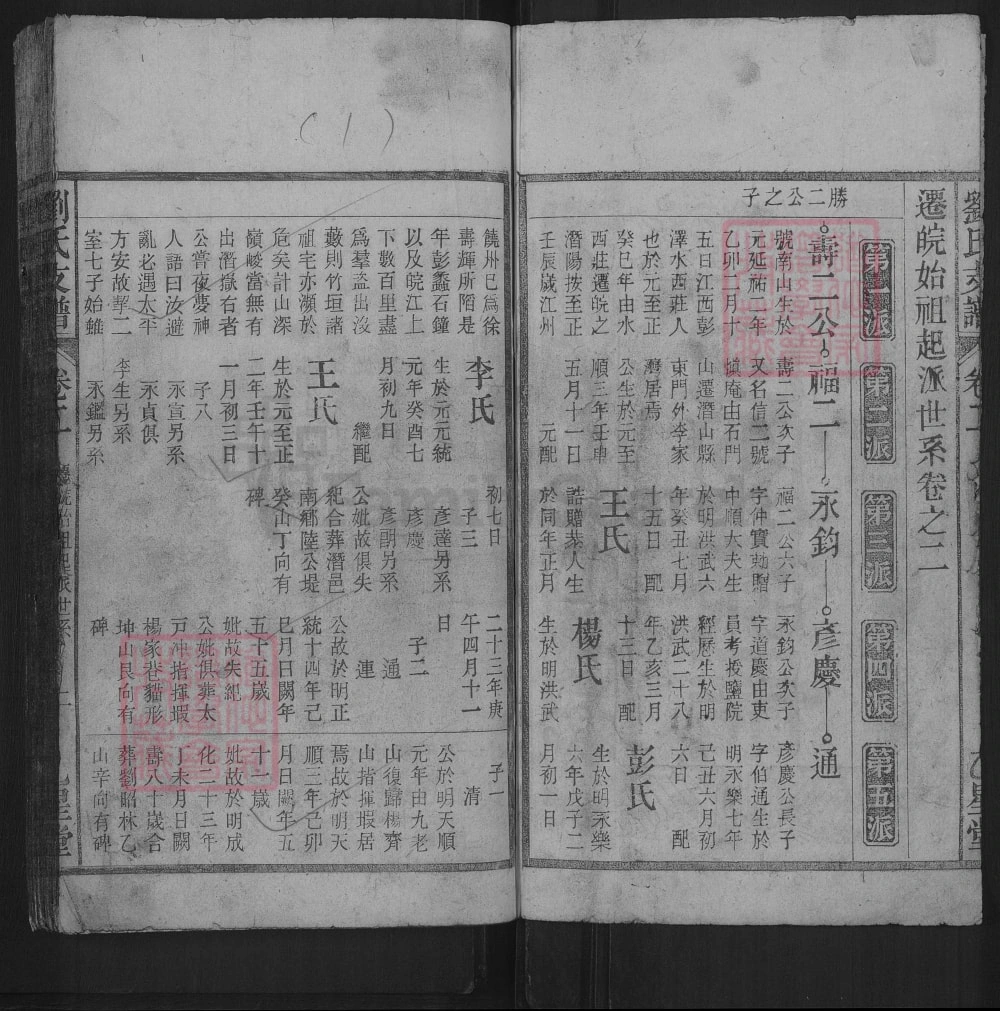 劉氏支譜
遷皖始祖起派世系卷之二
第一派
第二派
第三派
第四派
第五派
勝二公之子
壽二公
福二
永鈞
彥慶
通
號南山生於
元延祐二年
乙卯二月十
五日江西彭
澤水西莊人
也於元至正
癸巳年由水
西莊遷皖之
潛陽按至正
壬辰歲江州
壽二公次子
又名信二號
慎庵由石門
山遷潛山縣
東門外李家
灣居焉
公生於元至
順三年壬申
五月十一日
元配
福二公六子
字仲實勅贈
中順大夫生
於明洪武六
年癸丑七月
十五日 配
王氏
誥贈恭人生
於同年正月
永鈞公次子
字道慶由吏
員考授鹽院
經歷生於明
洪武二十八
年乙亥三月
十三日 配
楊氏
生於明洪武
彥慶公長子
字伯通生於
明永樂七年
己丑六月初
六日 配
彭氏
生於明永樂
六年戊子二
月初一日
饒州已為徐
壽輝所陷是
年彭蠡石鐘
以及皖江上
下數百里盡
為羣盜出沒
藪則竹垣諸
祖宅亦瀕於
危矣計山深
嶺峻當無有
出潛嶽右者
公嘗夜夢神
人語曰汝避
亂老遇太平
方安故挈二
室七子始雖
李氏
生於元元統
元年癸酉七
月初九日
繼配
王氏
生於元至正
二年壬午十
一月初三日
子八
永宣另系
永貞俱
李生另系
永鑑另系
初七日
子三
彥達另系
彥慶
彥朗另系
公妣故俱失
紀合葬潛邑
南鄉陸公堤
癸山丁向有
碑
二十三年庚
午四月十一
日
子二
通
連
公故於明正
統十四年己
巳月日闕年
五十五歲
妣故失紀
公妣俱葬太
冲指揮瑕
楊家巷貓形
坤山艮向有
碑
子一
清
公於明天順
元年由九老
山復歸楊齊
山指揮瑕居
焉故於明天
順三年己卯
月日闕年五
十一歲
妣故於明成
化二十三年
丁未月日闕
壽八十歲合
葬劉韶林乙
山辛向有碑
劉氏支譜
(1)